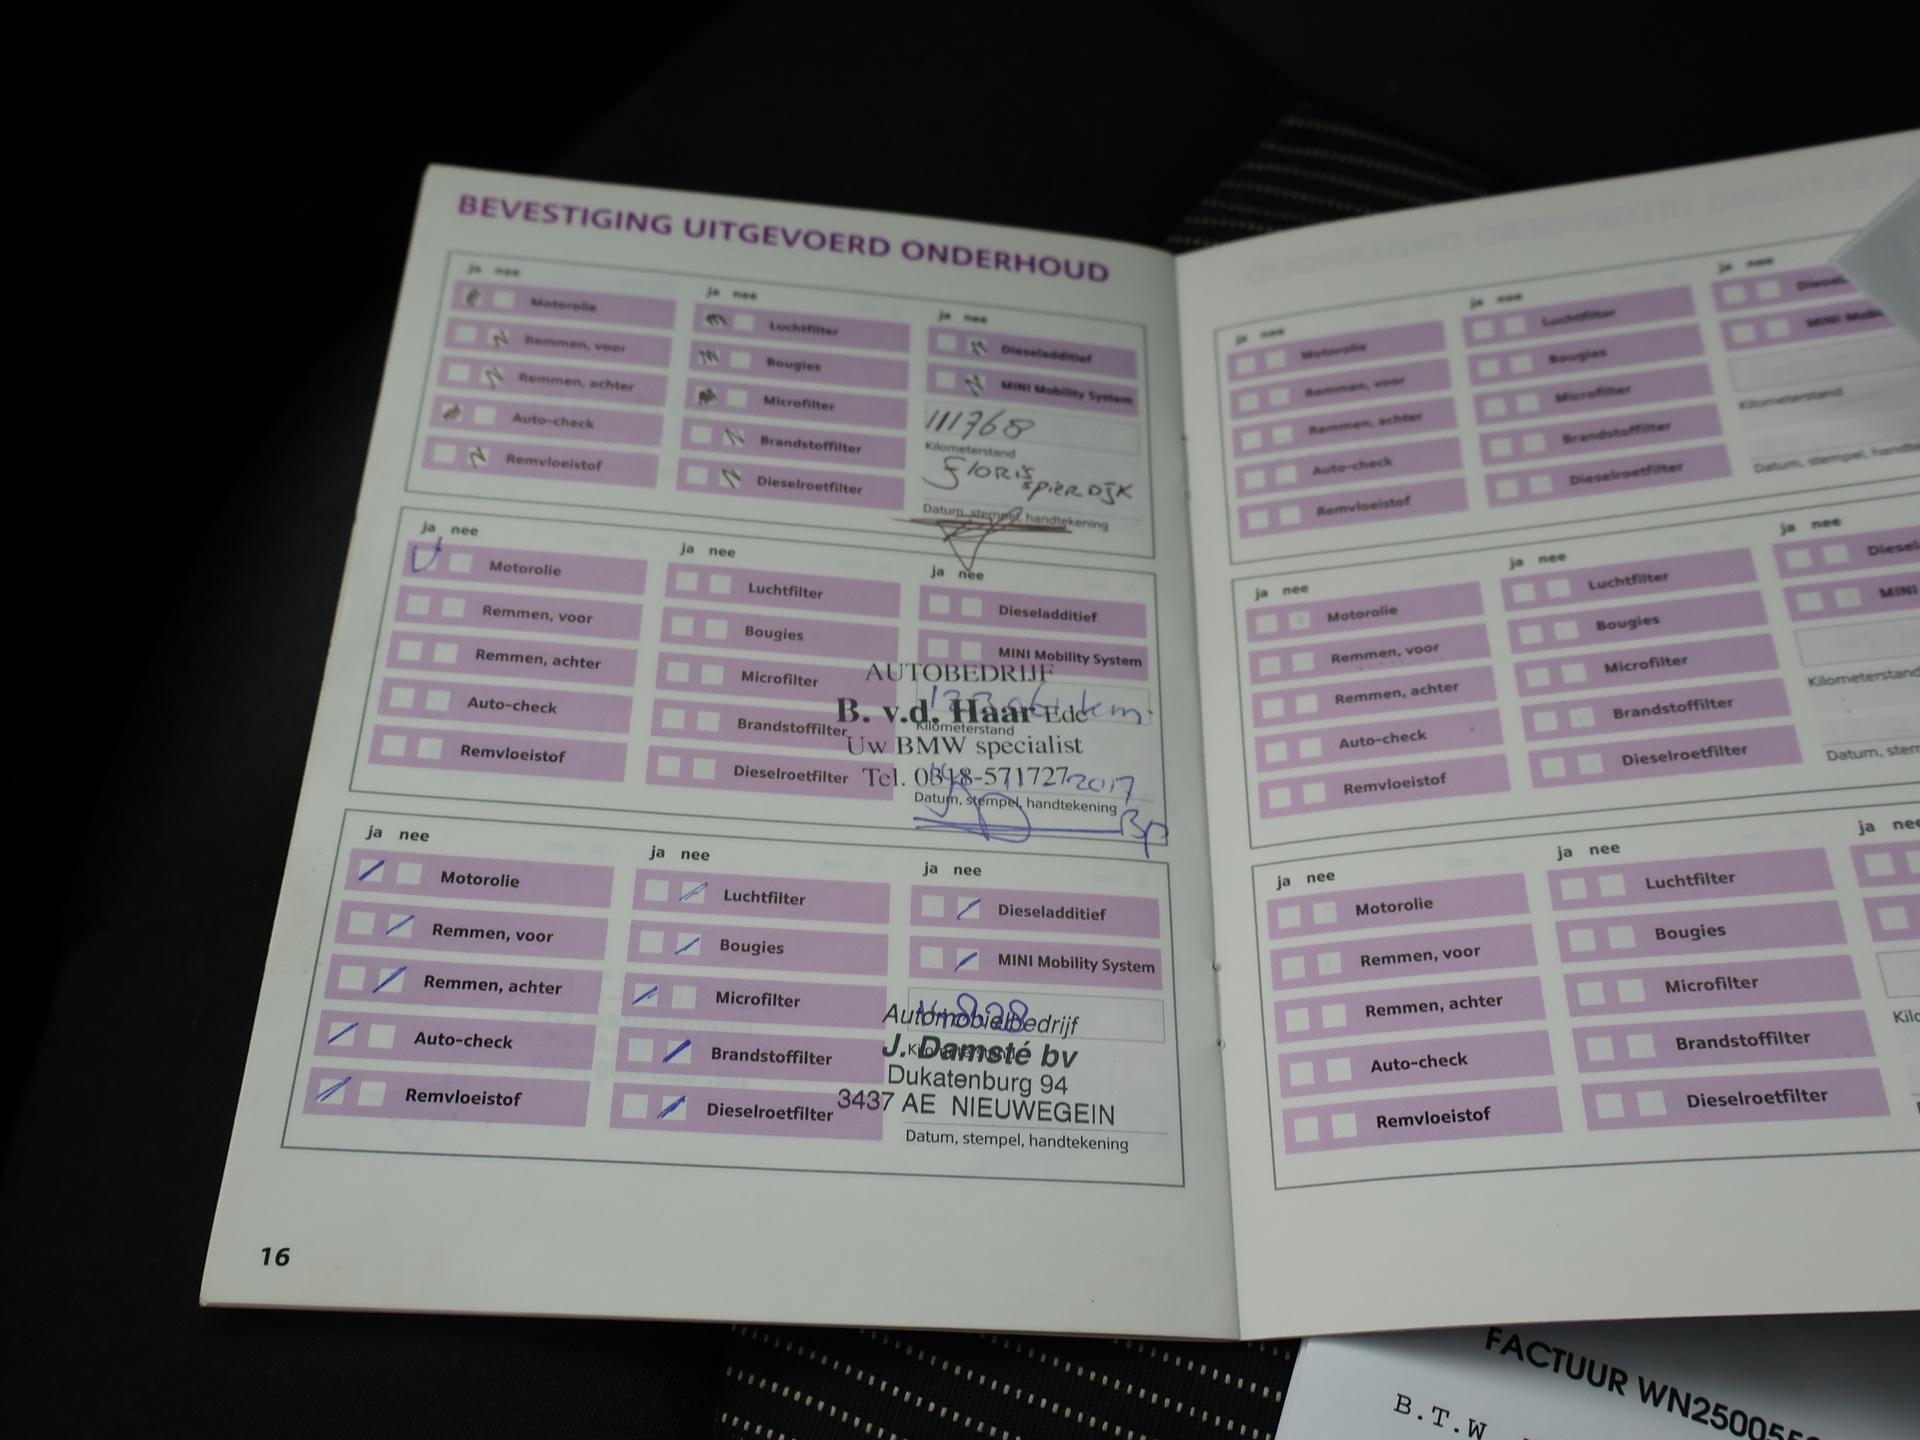 BEVESTIGING UITGEVOERD ONDERHOUD
ja nee
Motorolie
Remmen, voor
Remmen, achter
Auto-check
Remvloeistof
ja nee
Luchtfilter
Bougies
Microfilter
Brandstoffilter
Dieselroetfilter
ja nee
Dieseladditief
MINI Mobility System
111768
Kilometerstand
Floris
spierDijk
Datum, stempel, handtekening
ja nee
Motorolie
Remmen, voor
Remmen, achter
Auto-check
Remvloeistof
ja nee
Luchtfilter
Bougies
Microfilter
Brandstoffilter
Dieselroetfilter
ja nee
Dieseladditief
MINI Mobility System
AUTOBEDRIJF
B. v.d. Haar Ede
km.
Kilometerstand
Uw BMW specialist
Tel. 0318-571727
2017
Datum, stempel, handtekening
ja nee
Motorolie
Remmen, voor
Remmen, achter
Auto-check
Remvloeistof
ja nee
Luchtfilter
Bougies
Microfilter
Brandstoffilter
Dieselroetfilter
ja nee
Dieseladditief
MINI Mobility System
Automobielbedrijf
J. Damsté bv
Dukatenburg 94
3437 AE NIEUWEGEIN
Datum, stempel, handtekening
16
ja nee
Motorolie
Remmen, voor
Remmen, achter
Auto-check
Remvloeistof
ja nee
Luchtfilter
Bougies
Microfilter
Brandstoffilter
Dieselroetfilter
ja nee
Kilometerstand
ja nee
Motorolie
Remmen, voor
Remmen, achter
Auto-check
Remvloeistof
ja nee
Luchtfilter
Bougies
Microfilter
Brandstoffilter
Dieselroetfilter
ja nee
MINI
Kilometerstand
Datum,
ja nee
Motorolie
Remmen, voor
Remmen, achter
Auto-check
Remvloeistof
ja nee
Luchtfilter
Bougies
Microfilter
Brandstoffilter
Dieselroetfilter
ja
FACTUUR
B.T.W